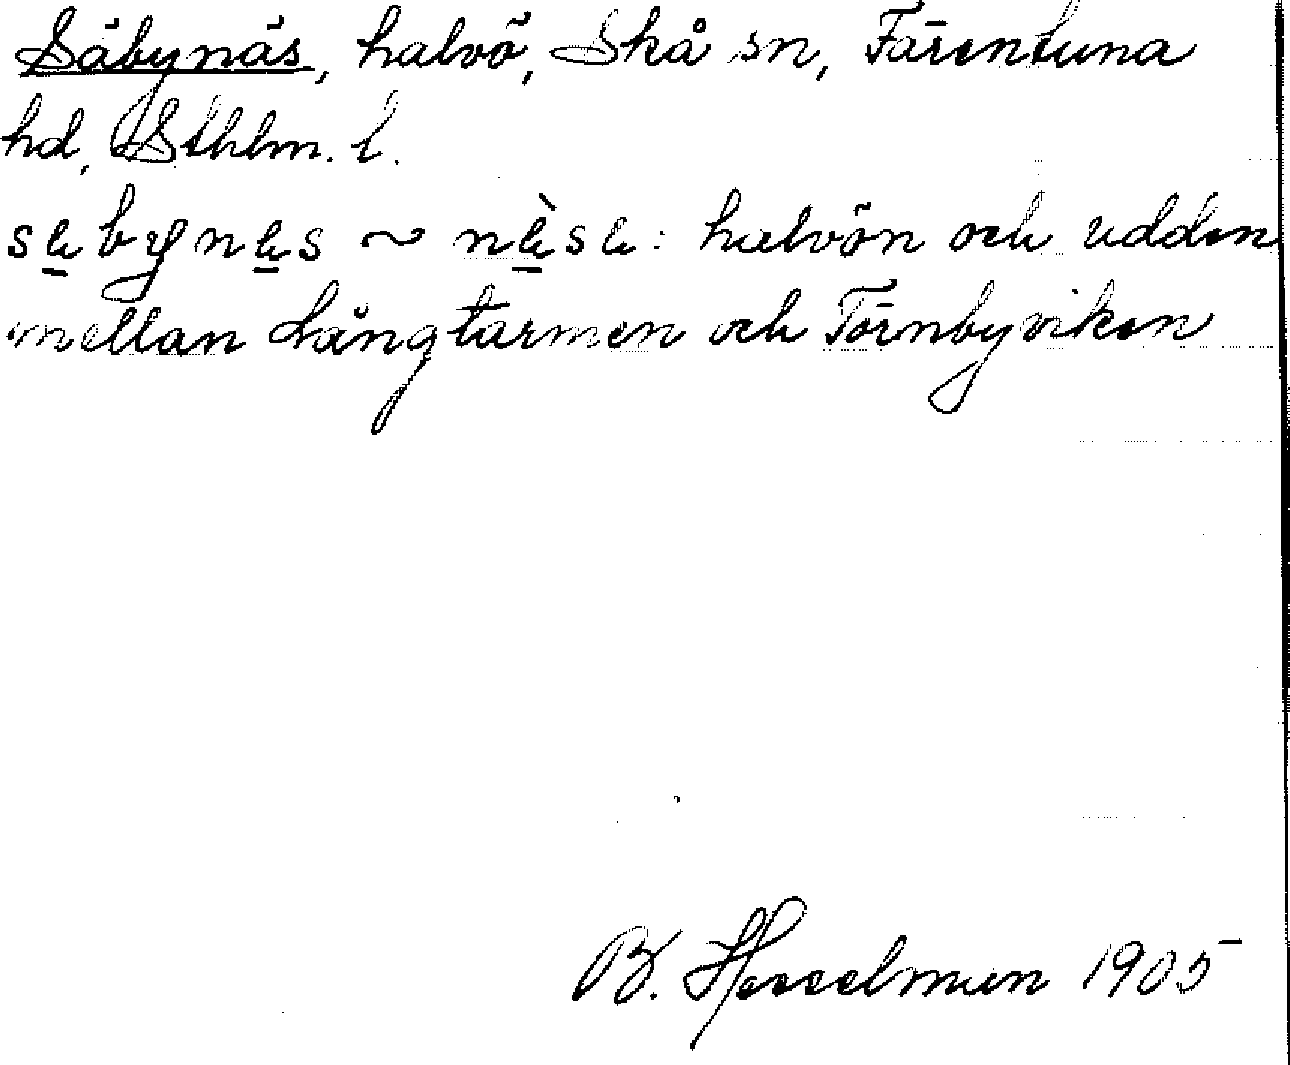 Säbynäs, halvö, Skå sn, Färentuna
hd, Sthlm. l.
säbynäs ~ nä̀sä: halvön och udden
mellan Långtarmen och Törnbyviken
B. Hesselman 1905